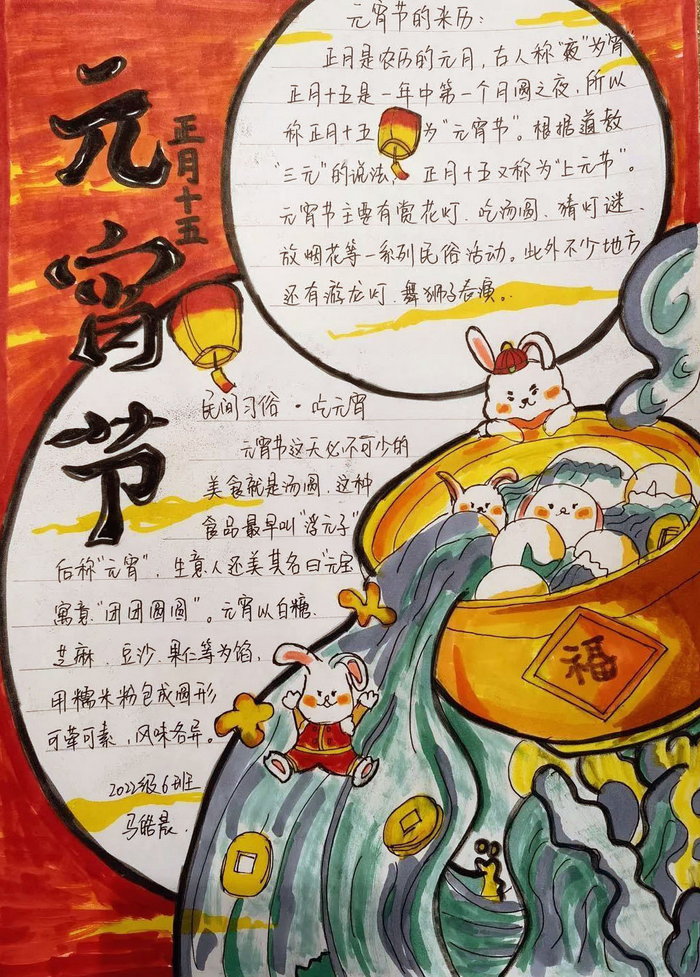 元宵节
正月十五
元宵节的来历：
正月是农历的元月，古人称“夜”为“宵”
正月十五是一年中第一个月圆之夜，所以
称正月十五为“元宵节”。根据道教
“三元”的说法，正月十五又称为“上元节”。
元宵节主要有赏花灯、吃汤圆、猜灯谜、
放烟花等一系列民俗活动。此外不少地方
还有游龙灯、舞狮子表演。
民间习俗·吃元宵
元宵节这天必不可少的
美食就是汤圆，这种
食品最早叫“浮元子”
后称“元宵”，生意人还美其名曰“元宝”
寓意“团团圆圆”。元宵以白糖、
芝麻、豆沙、果仁等为馅，
用糯米粉包成圆形
可荤可素，风味各异。
2022级6班
马皓晨
福